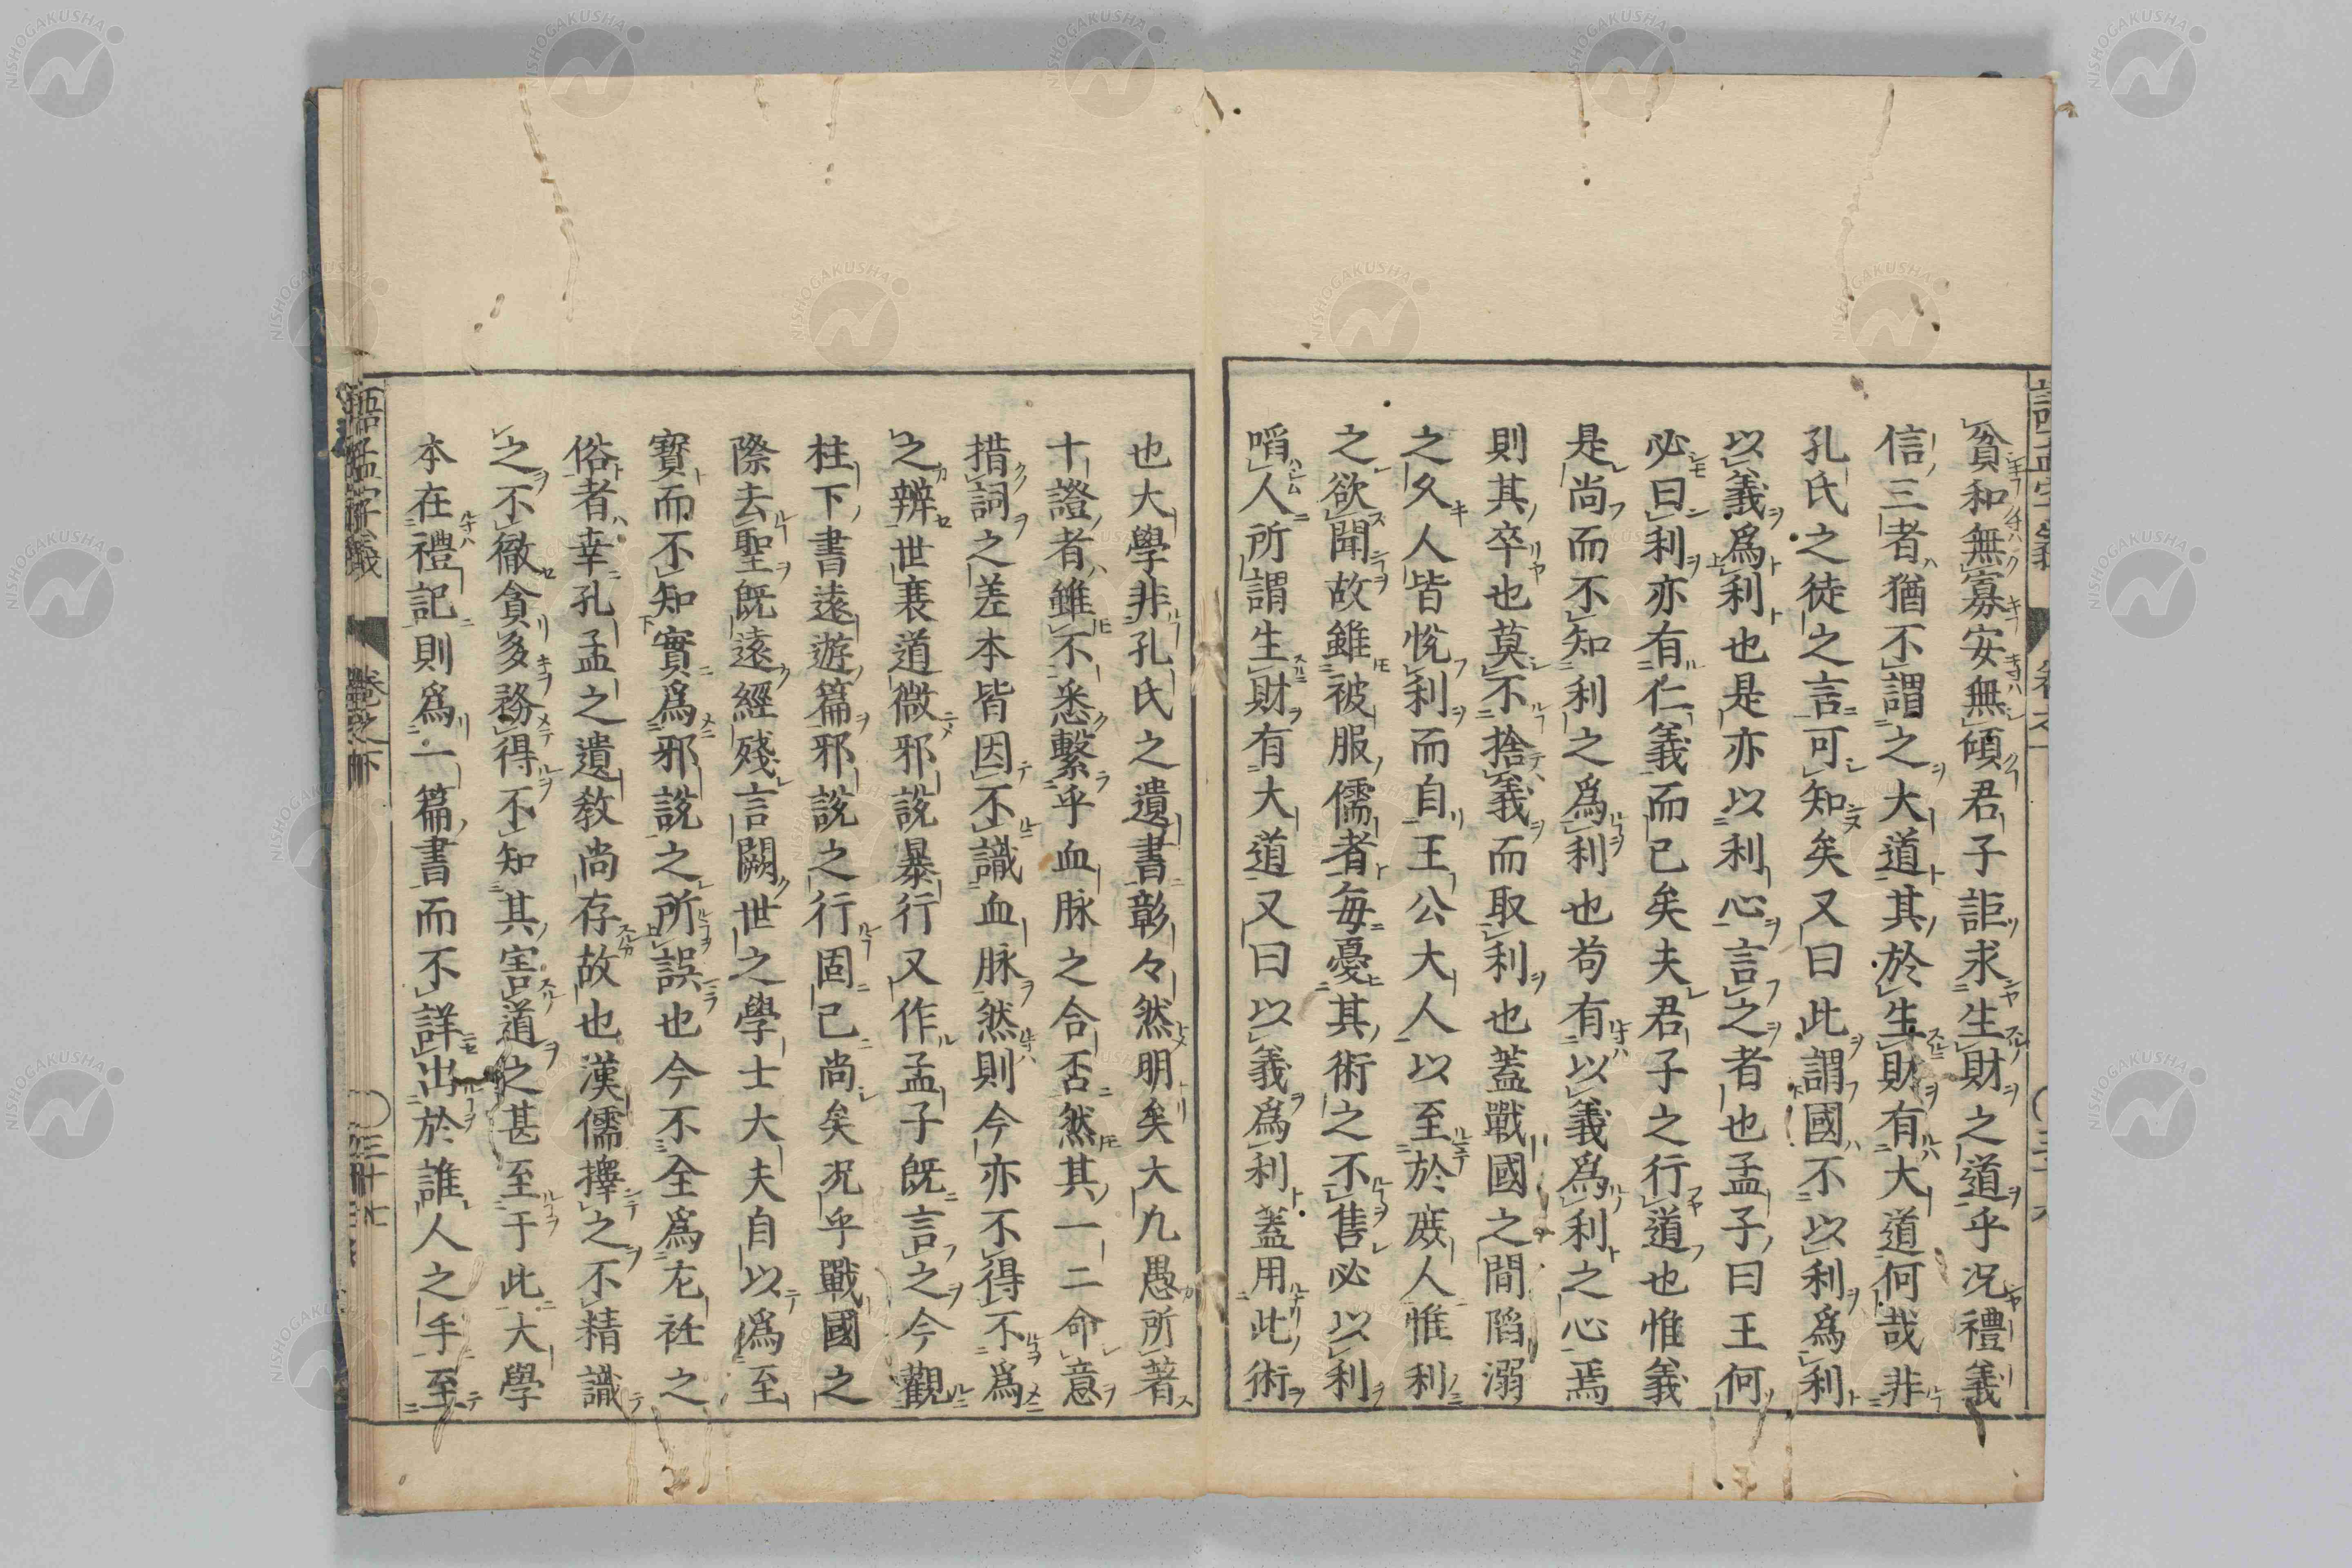 貧和無寡安無傾君子詎求生財之道乎况禮義
信三者猶不謂之大道其於生財有大道何哉非
孔氏之徒之言可知矣又曰此謂國不以利爲利
以義爲利也是亦以利心言之者也孟子曰王何
必曰利亦有仁義而已矣夫君子之行道也惟義
是尚而不知利之爲利也苟有以義爲利之心焉
則其卒也莫不捨義而取利也蓋戰國之間陷溺
之久人皆悅利而自王公大人以至於庶人惟利
之欲聞故雖被服儒者每憂其術之不售必以利
啗人所謂生財有大道又曰以義爲利蓋用此術
也大學非孔氏之遺書彰々然明矣大凡愚所著
十證者雖不悉繫乎血脉之合否然其一二命意
措詞之差本皆因不識血脉然則今亦不得不爲
之辨世衰道微邪說暴行又作孟子既言之今觀
柱下書遠遊篇邪說之行固已尚矣况乎戰國之
際去聖既遠經殘言闕世之學士大夫自以爲至
寶而不知實爲邪說之所誤也今不全爲左衽之
俗者幸孔孟之遺敎尚存故也漢儒擇之不精識
之不徹貪多務得不知其害道之甚至于此大學
本在禮記則爲一篇書而不詳出於誰人之手至
語孟字義
卷之下
三十七
NISHOGAKUSHA